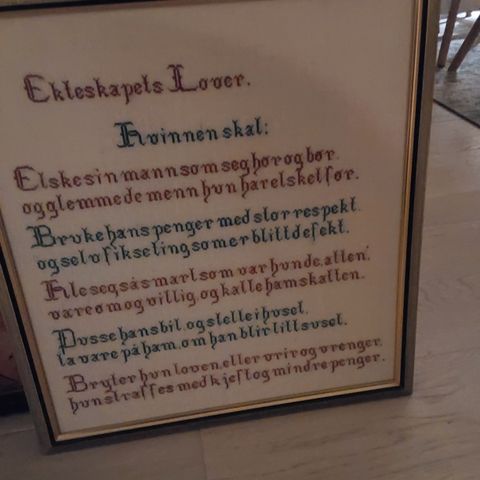 Ekteskapets Lover.
Kvinnen skal:
Elske sin mann som seg hør og bør.
og glemme de menn hun har elsket før.
Bruke hans penger med stor respekt.
og selv fikse ting som er blitt defekt.
Kle seg så smart som var hun de atten,
være øm og villig og kalle ham skatten.
Pusse hans bil, og stelle i huset.
ta vare på ham, om han blir litt suset.
Bryter hun loven, eller vrir og vrenger.
hun straffes med kjeft og mindre penger.